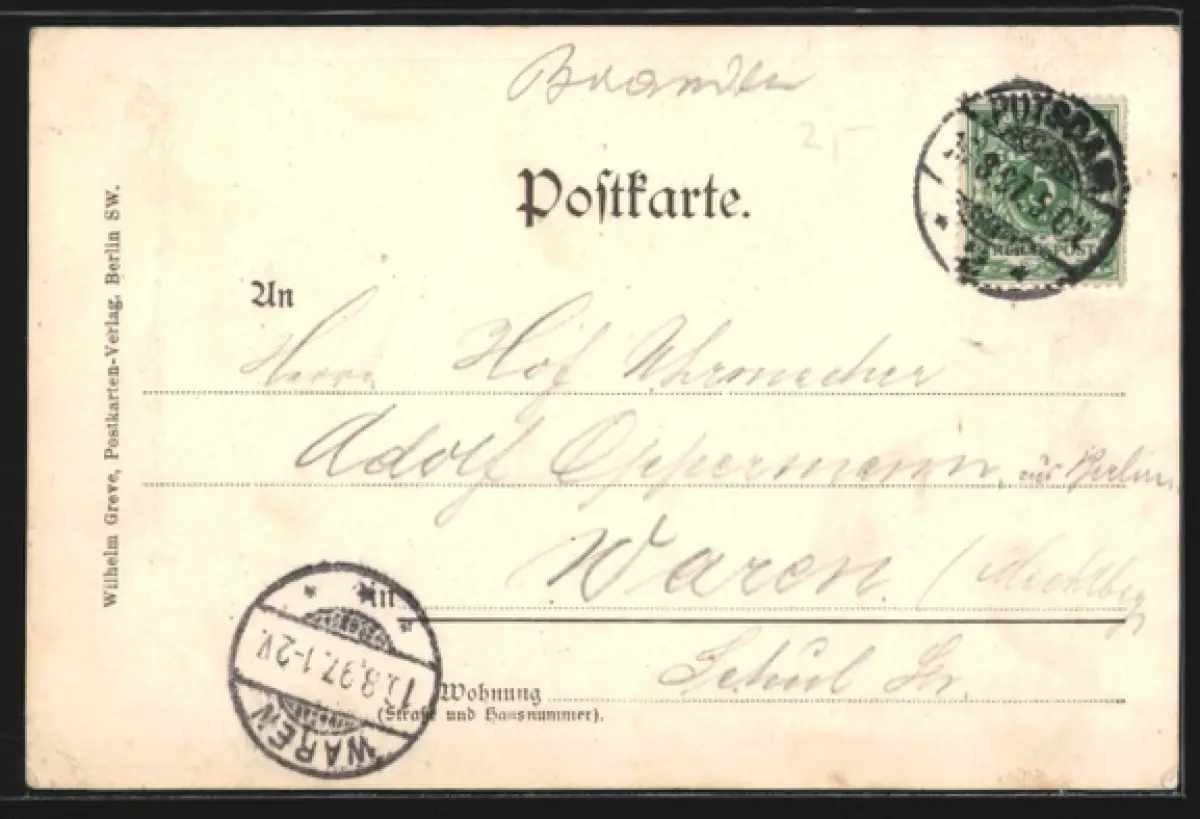 Branden
2,-
Postkarte.
POTSDAM
8.97.
5
REICHSPOST
An
Herrn Hof Uhrmacher
Adolf Oppermann, aus Berlin
Waren / Mecklbg
in
Schul Str.
Wohnung
(Straße und Hausnummer).
WAREN
8.97. 1-2 N.
Wilhelm Greve, Postkarten-Verlag, Berlin SW.